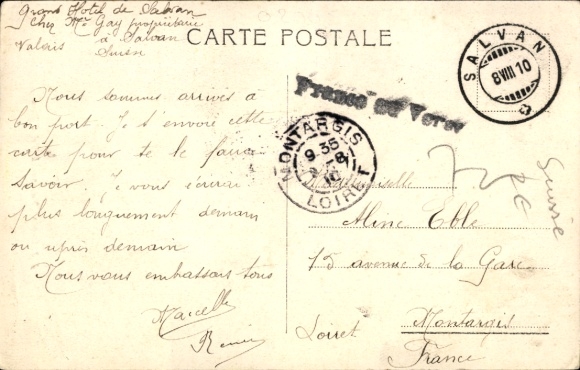 Grand Hotel de Salvan
Chez Mr Gay propriétaire
à Salvan
Valais Suisse
CARTE POSTALE
SALVAN
8 VIII 10
France au Verso
MONTARGIS
9 35
9 -8
10
LOIRET
Nous sommes arrivés à
bon port. Je t'envoie cette
carte pour te le faire
savoir. Je vous écrirai
plus longuement demain
ou après demain
Nous vous embrassons tous
Marcelle
Mademoiselle
Aline Eble
15 avenue de la Gare
Montargis
Loiret
France
Suisse